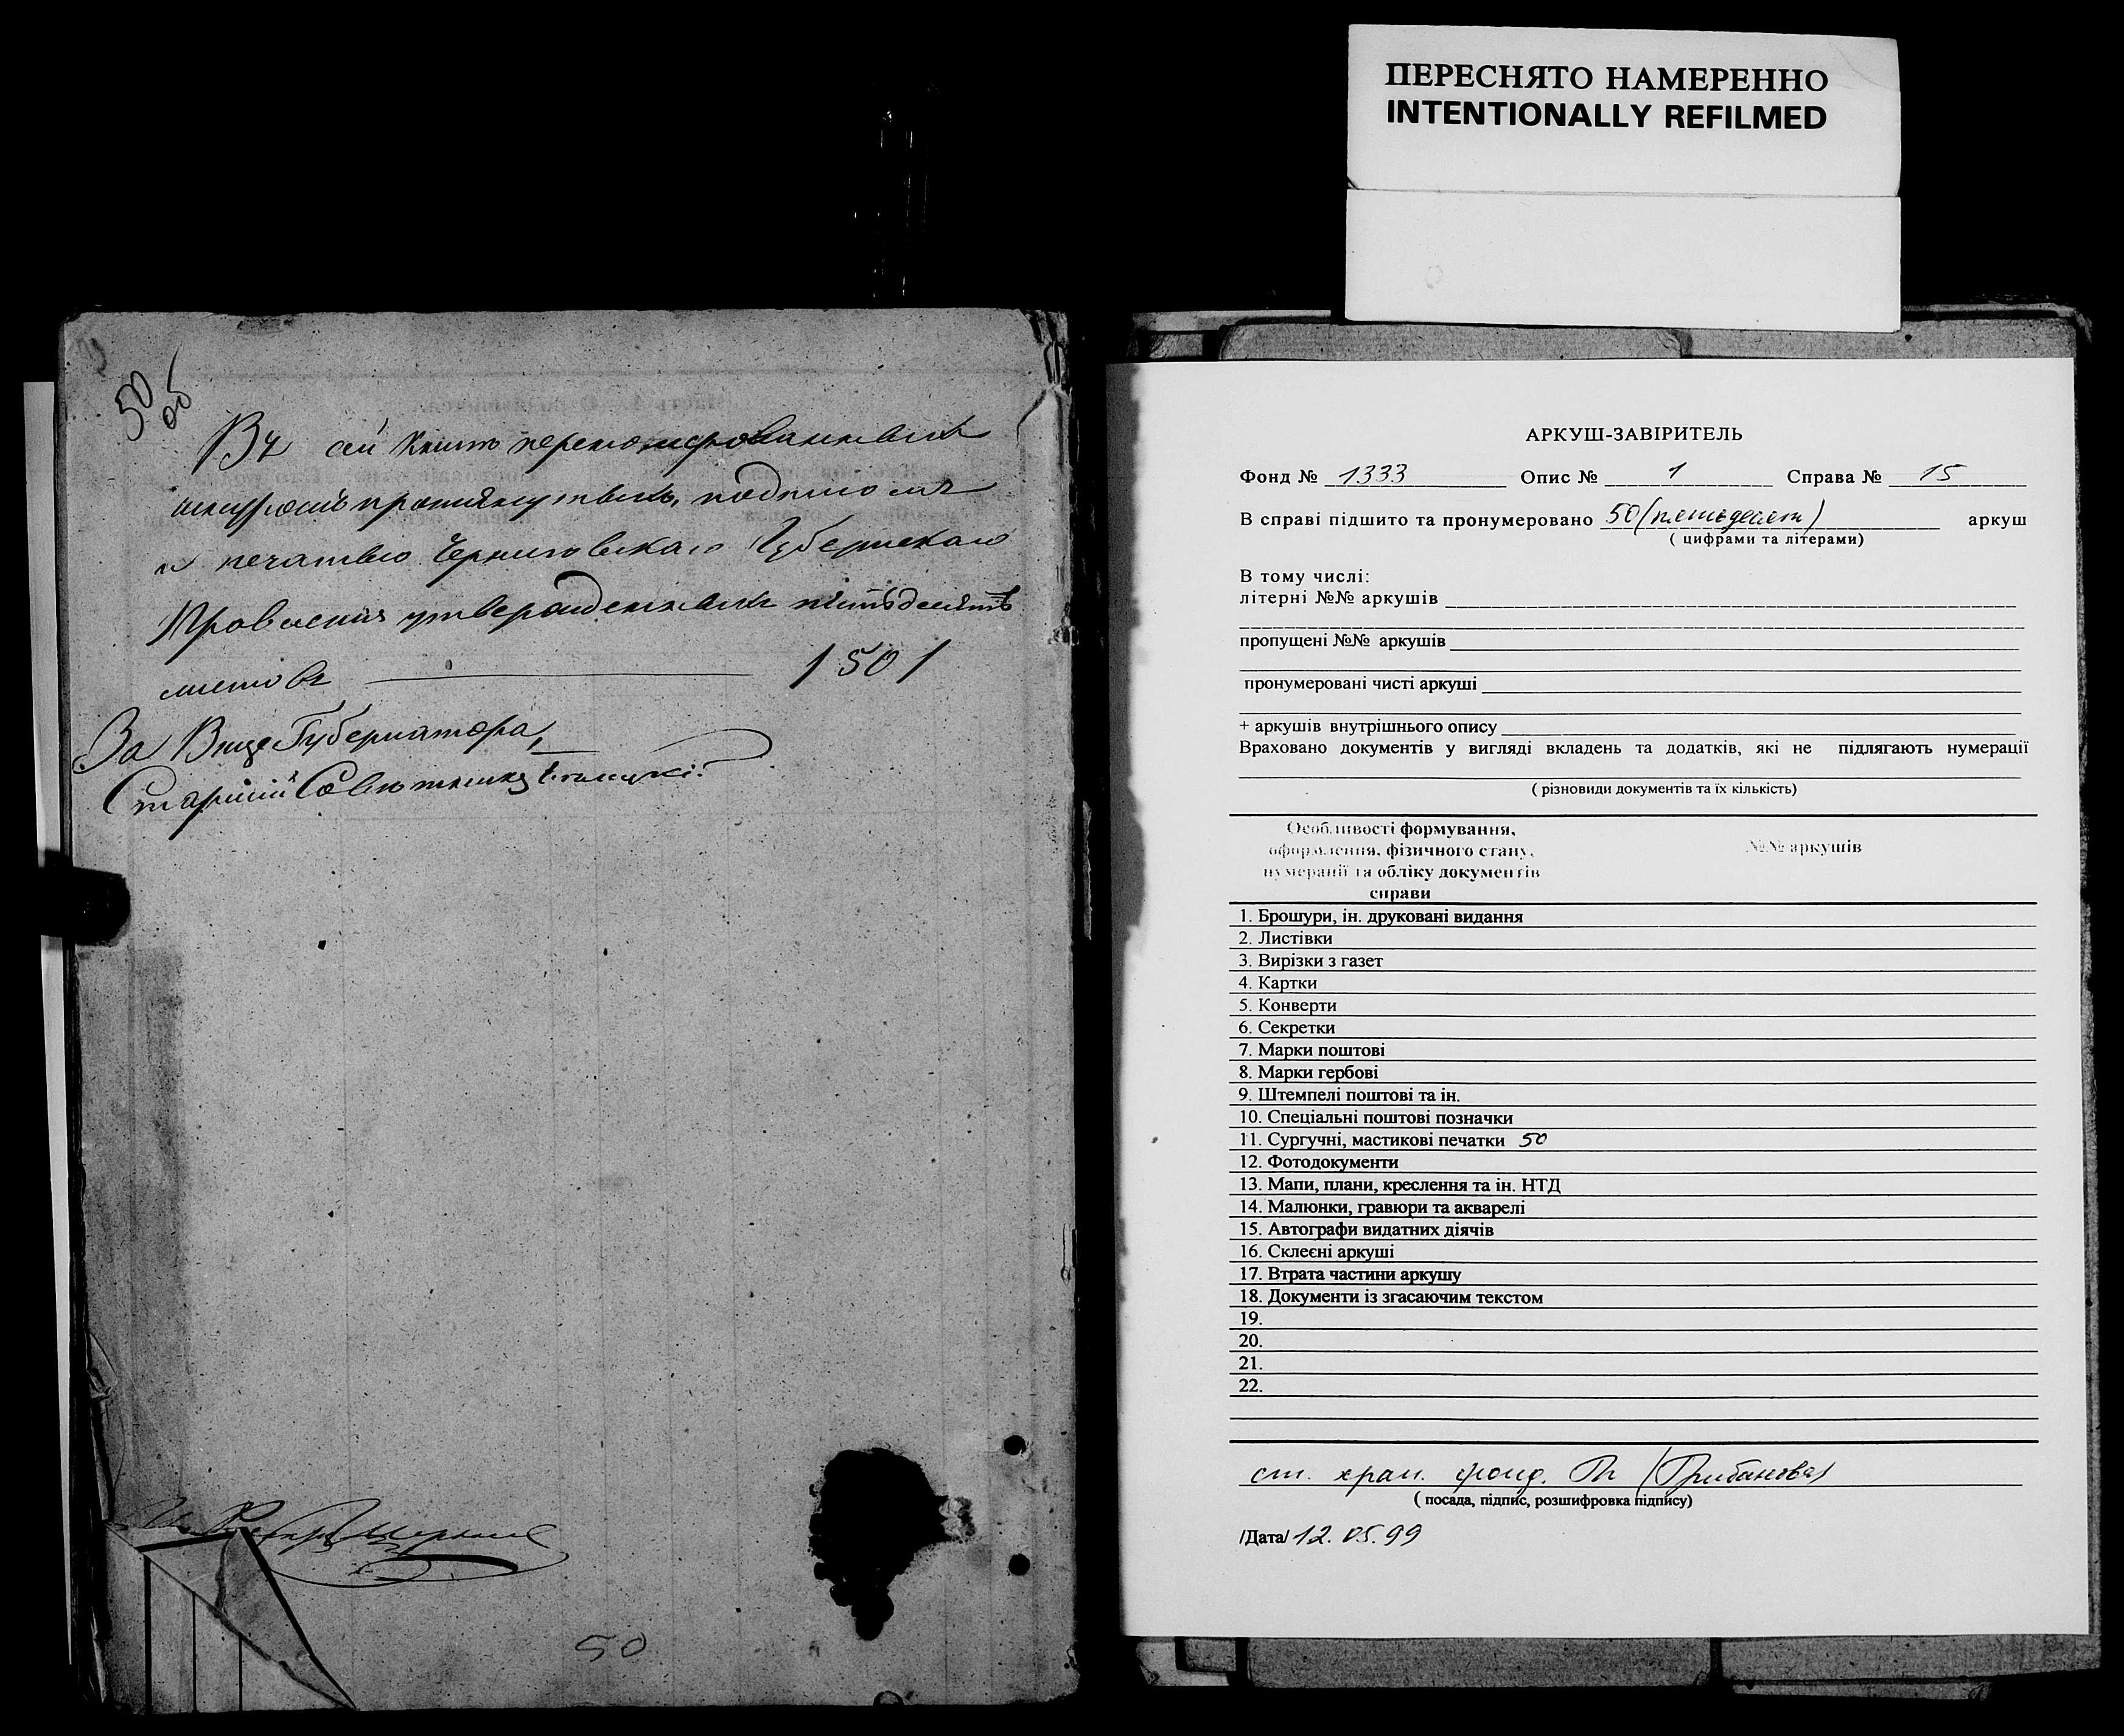 ПЕРЕСНЯТО НАМЕРЕННО
INTENTIONALLY REFILMED
50
об
Въ сей книгѣ перенумерованныхъ
шнуромъ протянутыхъ, подписомъ
и печатью Черниговскаго Губернскаго
Правленія утвержденныхъ пятьдесятъ
листовъ / 50 /
За Вице Губернатора,
Старшій Совѣтникъ
50
АРКУШ-ЗАВІРИТЕЛЬ
Фонд № 1333 Опис № 1 Справа № 15
В справі підшито та пронумеровано 50 (пятьдесят) аркуш
( цифрами та літерами)
В тому числі:
літерні №№ аркушів
пропущені №№ аркушів
пронумеровані чисті аркуші
+ аркушів внутрішнього опису
Враховано документів у вигляді вкладень та додатків, які не підлягають нумерації
( різновиди документів та їх кількість)
Особливості формування,
оформлення, фізичного стану,
нумерації та обліку документів
справи
№№ аркушів
1. Брошури, ін. друковані видання
2. Листівки
3. Вирізки з газет
4. Картки
5. Конверти
6. Секретки
7. Марки поштові
8. Марки гербові
9. Штемпелі поштові та ін.
10. Спеціальні поштові позначки
11. Сургучні, мастикові печатки 50
12. Фотодокументи
13. Мапи, плани, креслення та ін. НТД
14. Малюнки, гравюри та акварелі
15. Автографи видатних діячів
16. Склеєні аркуші
17. Втрата частини аркушу
18. Документи із згасаючим текстом
19.
20.
21.
22.
ст. хран. фонд. (Грибанова)
( посада, підпис, розшифровка підпису)
/Дата/ 12.05.99